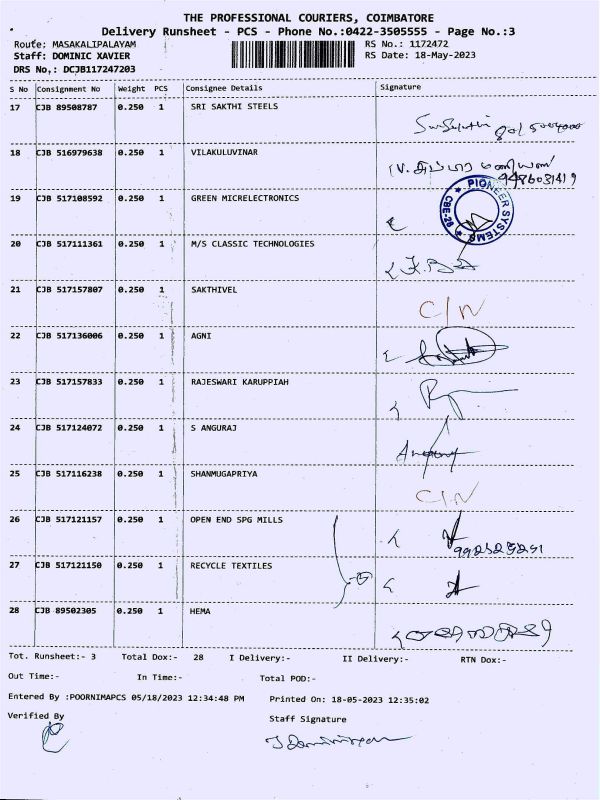 THE PROFESSIONAL COURIERS, COIMBATORE
Delivery Runsheet - PCS - Phone No.:0422-3505555 - Page No.:3
Route: MASAKALIPALAYAM RS No.: 1172472
Staff: DOMINIC XAVIER RS Date: 18-May-2023
DRS No.: DCJB117247203
S No Consignment No Weight PCS Consignee Details Signature
17 CJB 89508787 0.250 1 SRI SAKTHI STEELS
18 CJB 516979638 0.250 1 VILAKULUVINAR
9486031419
19 CJB 517108592 0.250 1 GREEN MICRELECTRONICS
PIONEER SYSTEMS CBE-28
20 CJB 517111361 0.250 1 M/S CLASSIC TECHNOLOGIES
21 CJB 517157807 0.250 1 SAKTHIVEL C/N
22 CJB 517136006 0.250 1 AGNI
23 CJB 517157833 0.250 1 RAJESWARI KARUPPIAH
24 CJB 517124072 0.250 1 S ANGURAJ
25 CJB 517116238 0.250 1 SHANMUGAPRIYA C/N
26 CJB 517121157 0.250 1 OPEN END SPG MILLS
27 CJB 517121150 0.250 1 RECYCLE TEXTILES
28 CJB 89502305 0.250 1 HEMA
Tot. Runsheet:- 3 Total Dox:- 28 I Delivery:- II Delivery:- RTN Dox:-
Out Time:- In Time:- Total POD:-
Entered By :POORNIMAPCS 05/18/2023 12:34:48 PM Printed On: 18-05-2023 12:35:02
Verified By Staff Signature